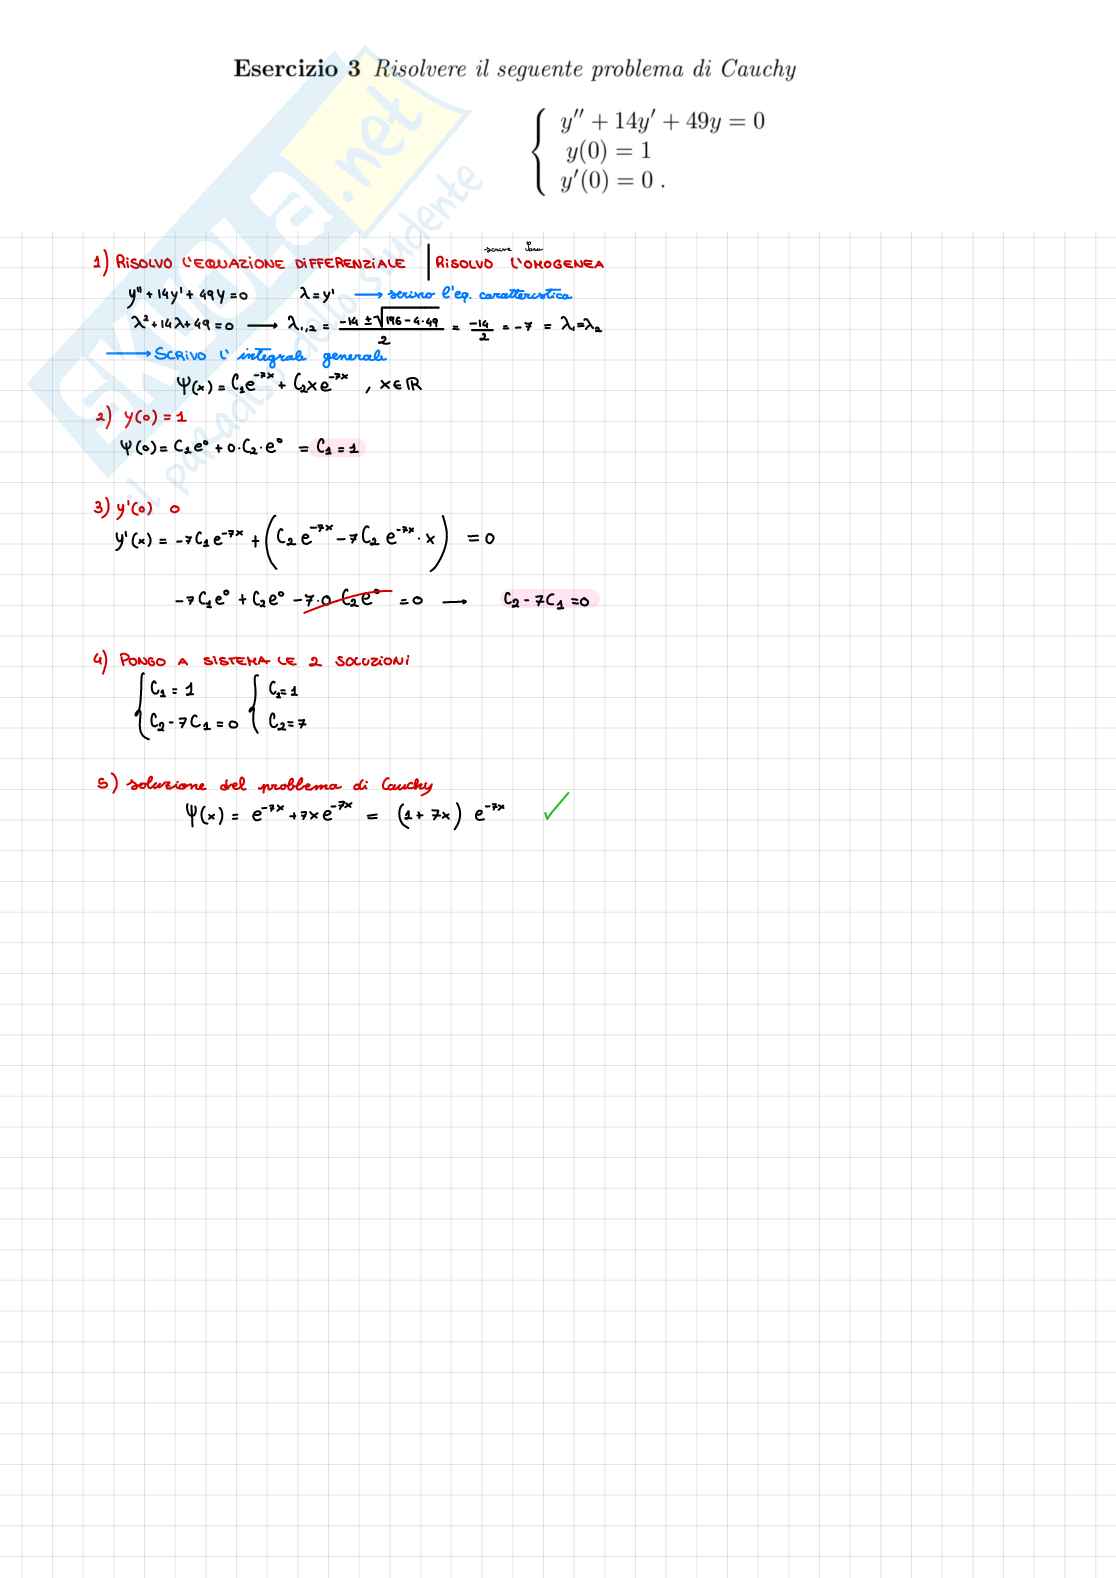 Esercizio 3 Risolvere il seguente problema di Cauchy
y'' + 14y' + 49y = 0
y(0) = 1
y'(0) = 0 .
SKUOLA.net
il paradiso dello studente
1) RISOLVO L'EQUAZIONE DIFFERENZIALE | RISOLVO L'OMOGENEA
y'' + 14y' + 49y = 0 λ = y' ⟶ scrivo l'eq. caratteristica
λ² + 14λ + 49 = 0 ⟶ λ₁,₂ = (-14 ± √(196 - 4·49))/2 = -14/2 = -7 = λ₁=λ₂
⟶ SCRIVO L' integrale generale
Ψ(x) = C₁e^(-7x) + C₂xe^(-7x) , x∈ℝ
2) y(0) = 1
Ψ(0) = C₁e⁰ + 0·C₂·e⁰ = C₁ = 1
3) y'(0) 0
y'(x) = -7C₁e^(-7x) + (C₂e^(-7x) - 7C₂e^(-7x)·x) = 0
-7C₁e⁰ + C₂e⁰ - 7·0·C₂e⁰ = 0 ⟶ C₂ - 7C₁ = 0
4) PONGO A SISTEMA LE 2 SOLUZIONI
C₁ = 1 C₁ = 1
C₂ - 7C₁ = 0 C₂ = 7
5) soluzione del problema di Cauchy
Ψ(x) = e^(-7x) + 7xe^(-7x) = (1 + 7x) e^(-7x) ✓